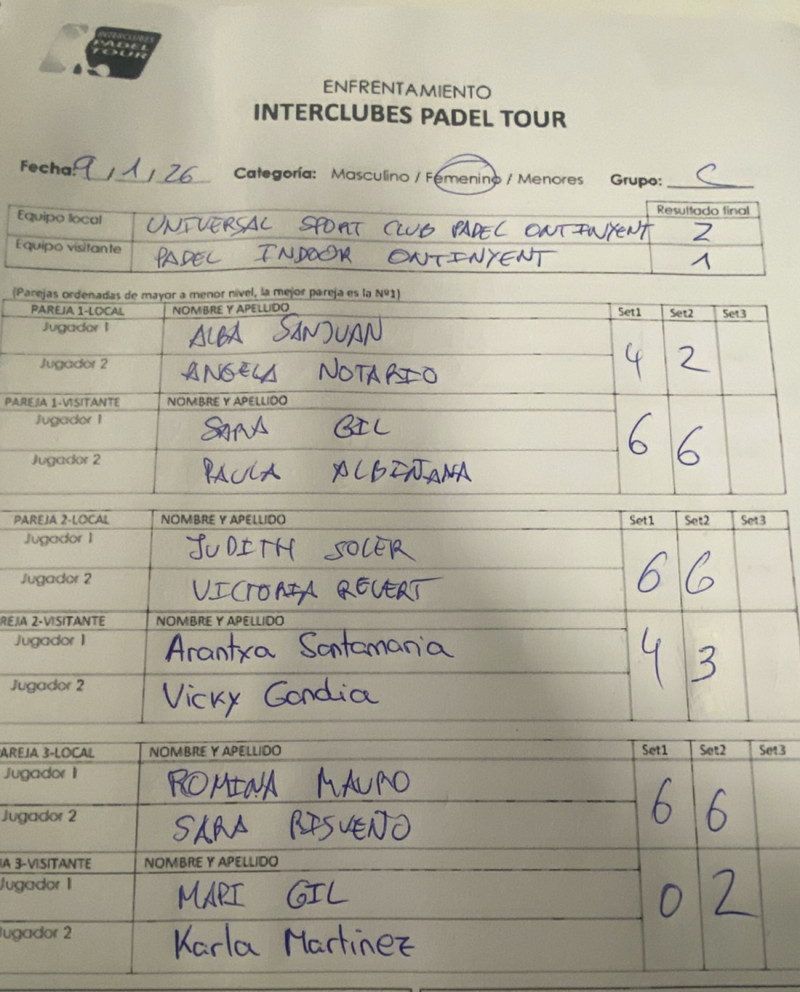 INTERCLUBES
PADEL
TOUR
ENFRENTAMIENTO
INTERCLUBES PADEL TOUR
Fecha: 9 / 1 / 26 Categoría: Masculino / Femenino / Menores Grupo: C
Resultado final
Equipo local UNIVERSAL SPORT CLUB PADEL ONTINYENT 2
Equipo visitante PADEL INDOOR ONTINYENT 1
(Parejas ordenadas de mayor a menor nivel, la mejor pareja es la Nº1)
PAREJA 1-LOCAL NOMBRE Y APELLIDO Set1 Set2 Set3
Jugador 1 ALBA SANJUAN
4 2
Jugador 2 ANGELA NOTARIO
PAREJA 1-VISITANTE NOMBRE Y APELLIDO
Jugador 1 SARA GIL
6 6
Jugador 2 PAULA ALBINANA
PAREJA 2-LOCAL NOMBRE Y APELLIDO Set1 Set2 Set3
Jugador 1 JUDITH SOLER
6 6
Jugador 2 VICTORIA REVERT
REJA 2-VISITANTE NOMBRE Y APELLIDO
Jugador 1 Arantxa Santamaria
4 3
Jugador 2 Vicky Gandia
AREJA 3-LOCAL NOMBRE Y APELLIDO Set1 Set2 Set3
Jugador 1 ROMINA MAURO
6 6
Jugador 2 SARA RISUEÑO
JA 3-VISITANTE NOMBRE Y APELLIDO
Jugador 1 MARI GIL
0 2
ugador 2 Karla Martinez